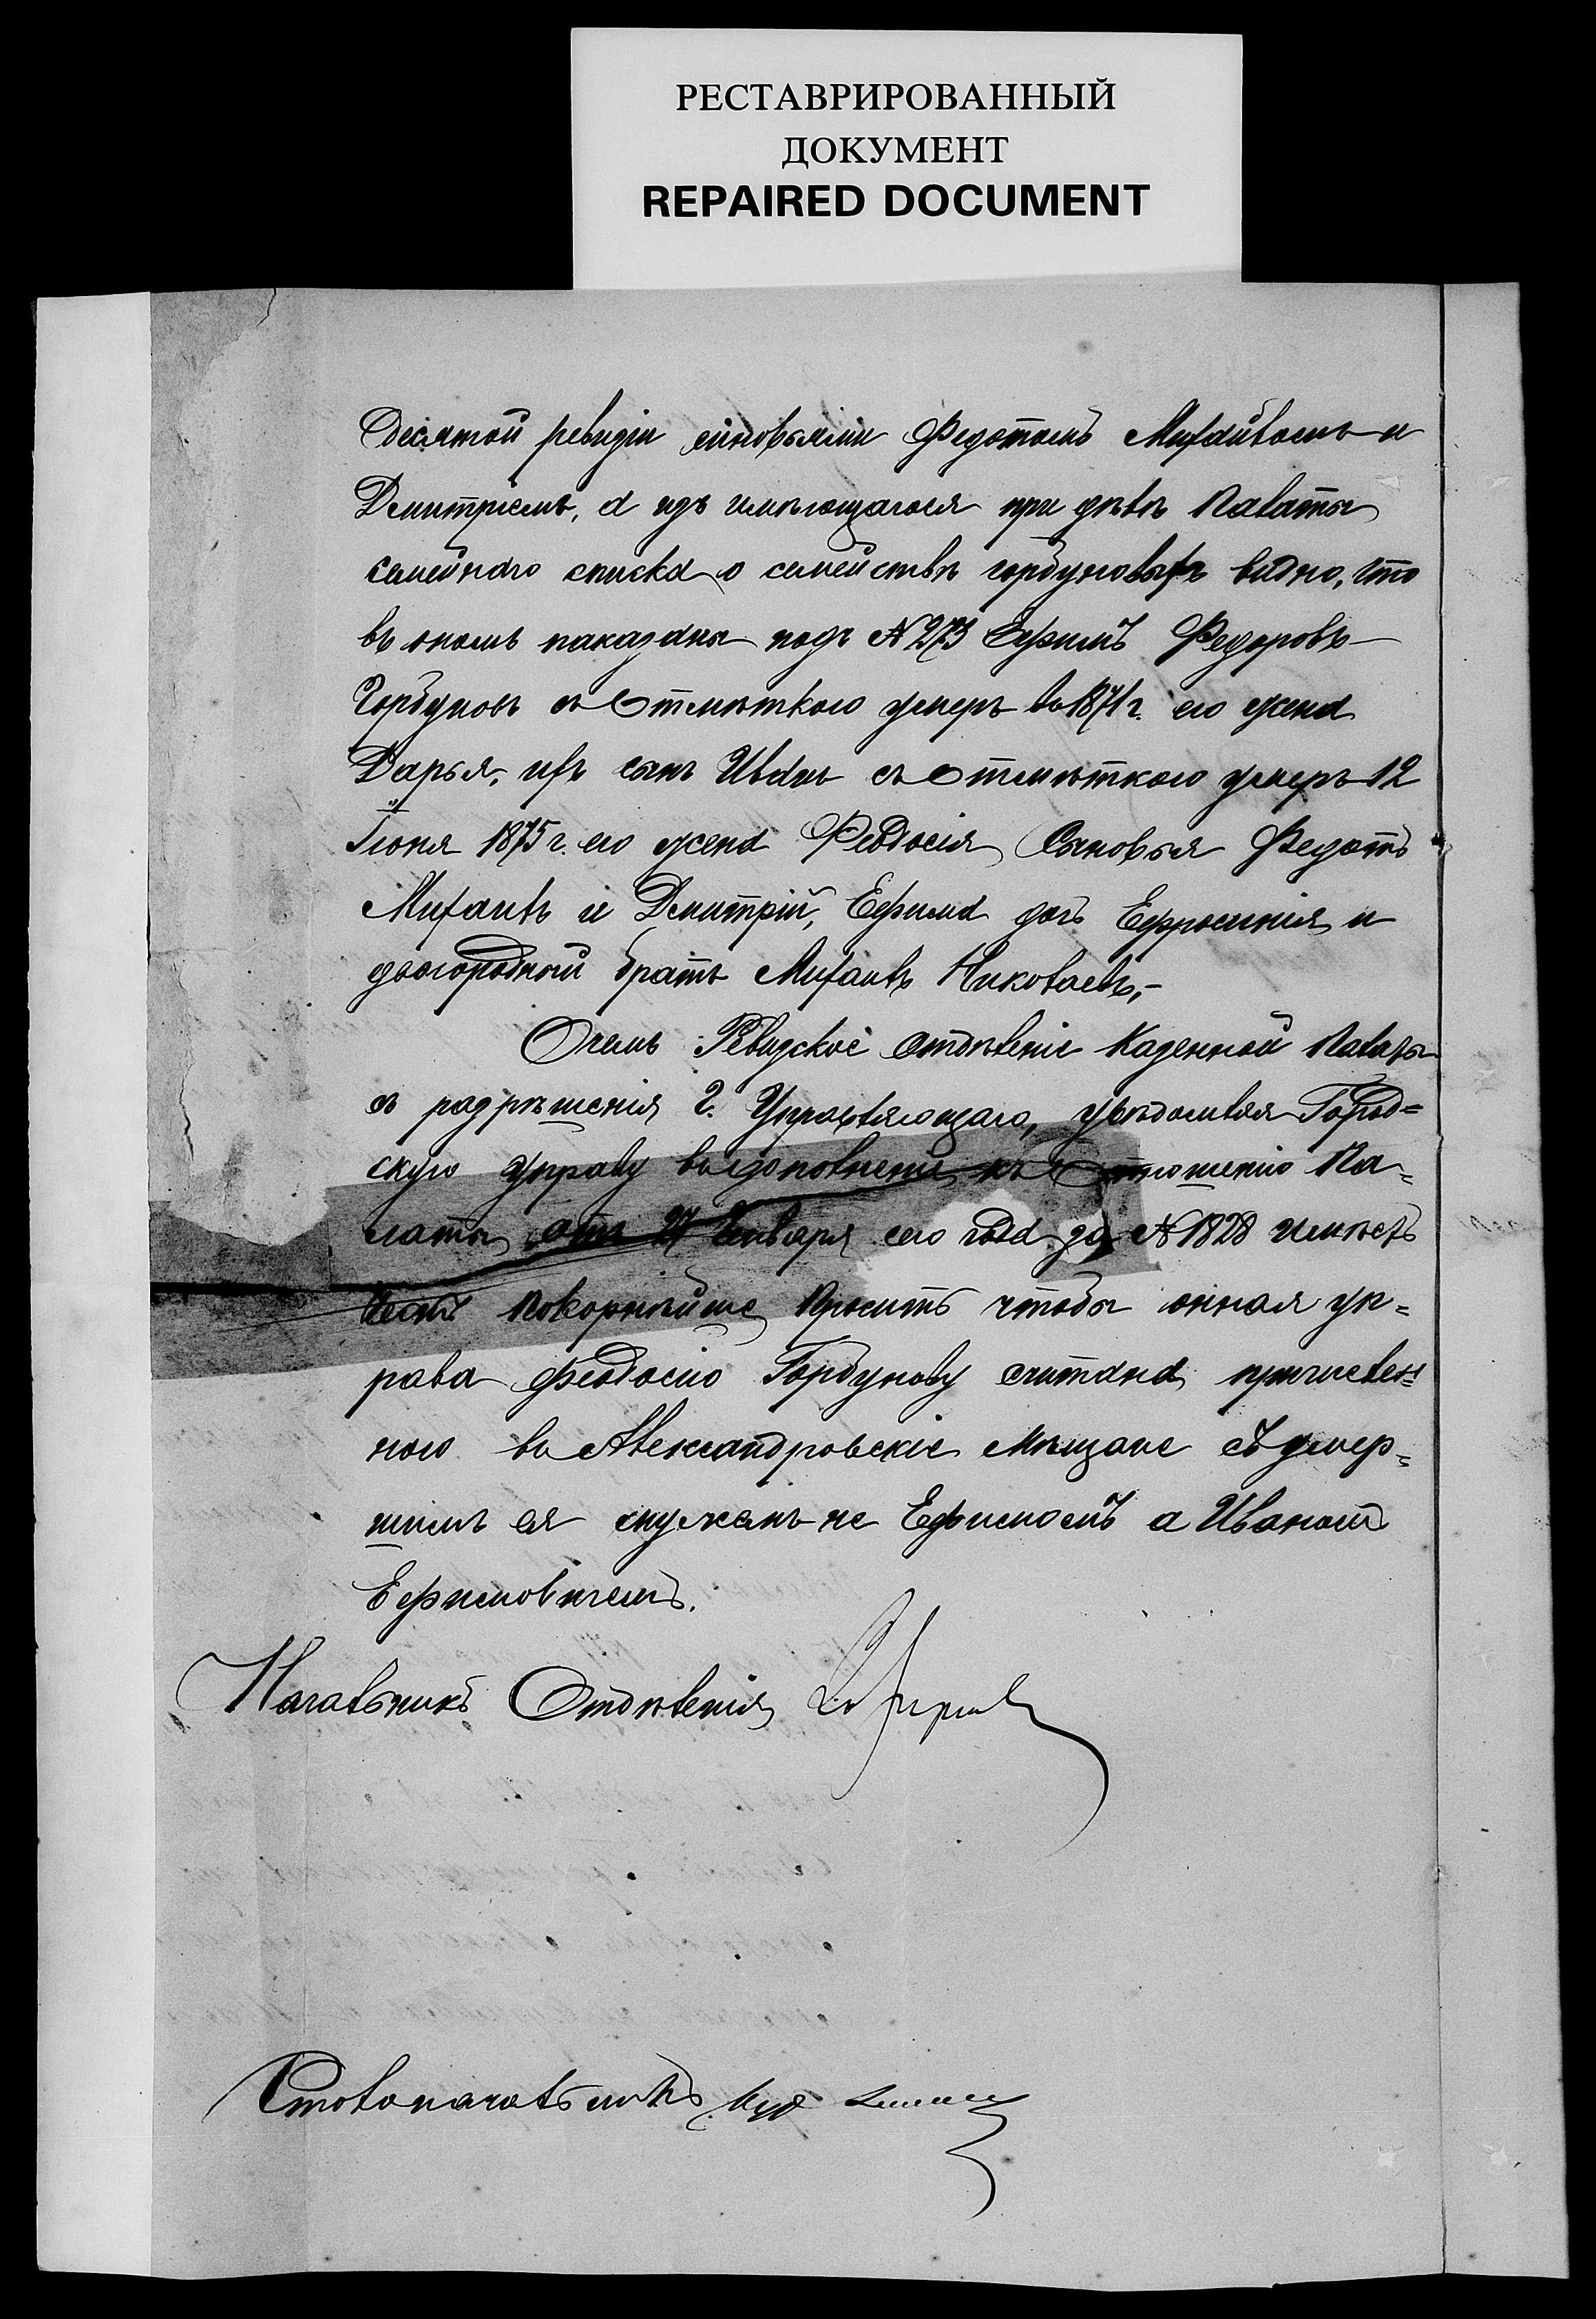 РЕСТАВРИРОВАННЫЙ
ДОКУМЕНТ
REPAIRED DOCUMENT
десятой ревизіи сыновьями Федотомъ Михайломъ и
Дмитріемъ, а изъ имѣющагося при дѣлѣ Палаты
семейнаго списка о семействѣ горбуновыхъ видно, что
въ ономъ показаны подъ № 273 Ефимъ Федоровъ
Горбуновъ съ Отмѣткою умеръ въ 1871 г. его жена
Дарья, ихъ сынъ Иванъ съ отмѣткою умеръ 12
Іюня 1875 г. его жена Феодосія Сыновья Федотъ
Михаилъ и Дмитрій, Ефима дочь Ефросинія и
двоюродный братъ Михаилъ Николаевъ,-
Очемъ Ревизское отдѣленіе Казенной Палаты
съ разрѣшенія Г. Управляющаго, увѣдомляя Город=
скую управу въ дополненіе къ Отношенію Па=
латы отъ 27 Января сего года за № 1828 имѣетъ
честь покорнѣйше просить чтобы онная уп=
рава феодосію Горбунову считана причислен=
ною въ Александровскіе мѣщане съ умер=
шимъ ея мужемъ не Ефимомъ а Иваномъ
Ефимовичемъ.
Начальникъ Отдѣленія
Столоначальникъ